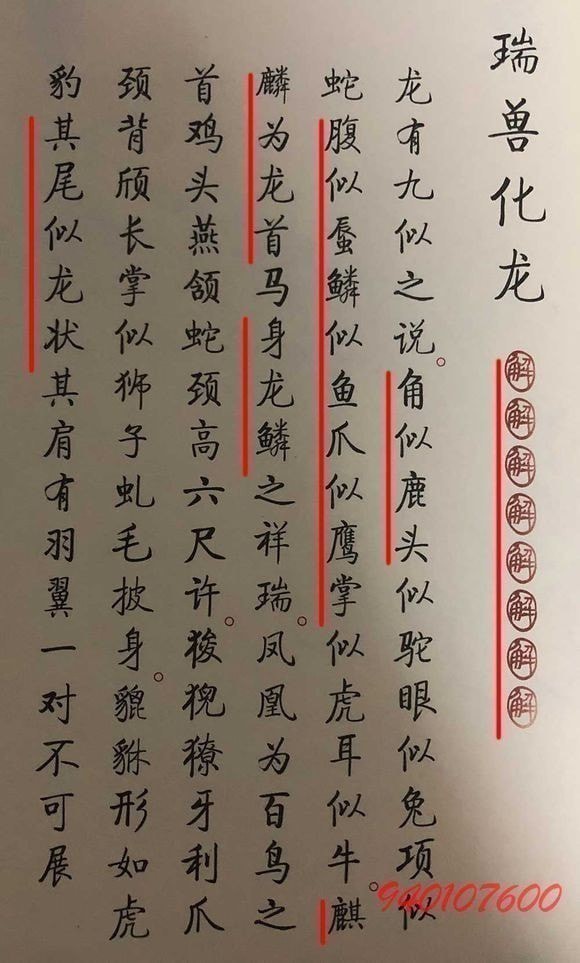 瑞兽化龙
解解解解解解解解
龙有九似之说。角似鹿头似驼眼似兔项似
蛇腹似蜃鳞似鱼爪似鹰掌似虎耳似牛。麒
麟为龙首马身龙鳞之祥瑞。凤凰为百鸟之
首鸡头燕颌蛇颈高六尺许。狻猊獠牙利爪
颈背颀长掌似狮子虬毛披身。貔貅形如虎
豹其尾似龙状其肩有羽翼一对不可展
940107600